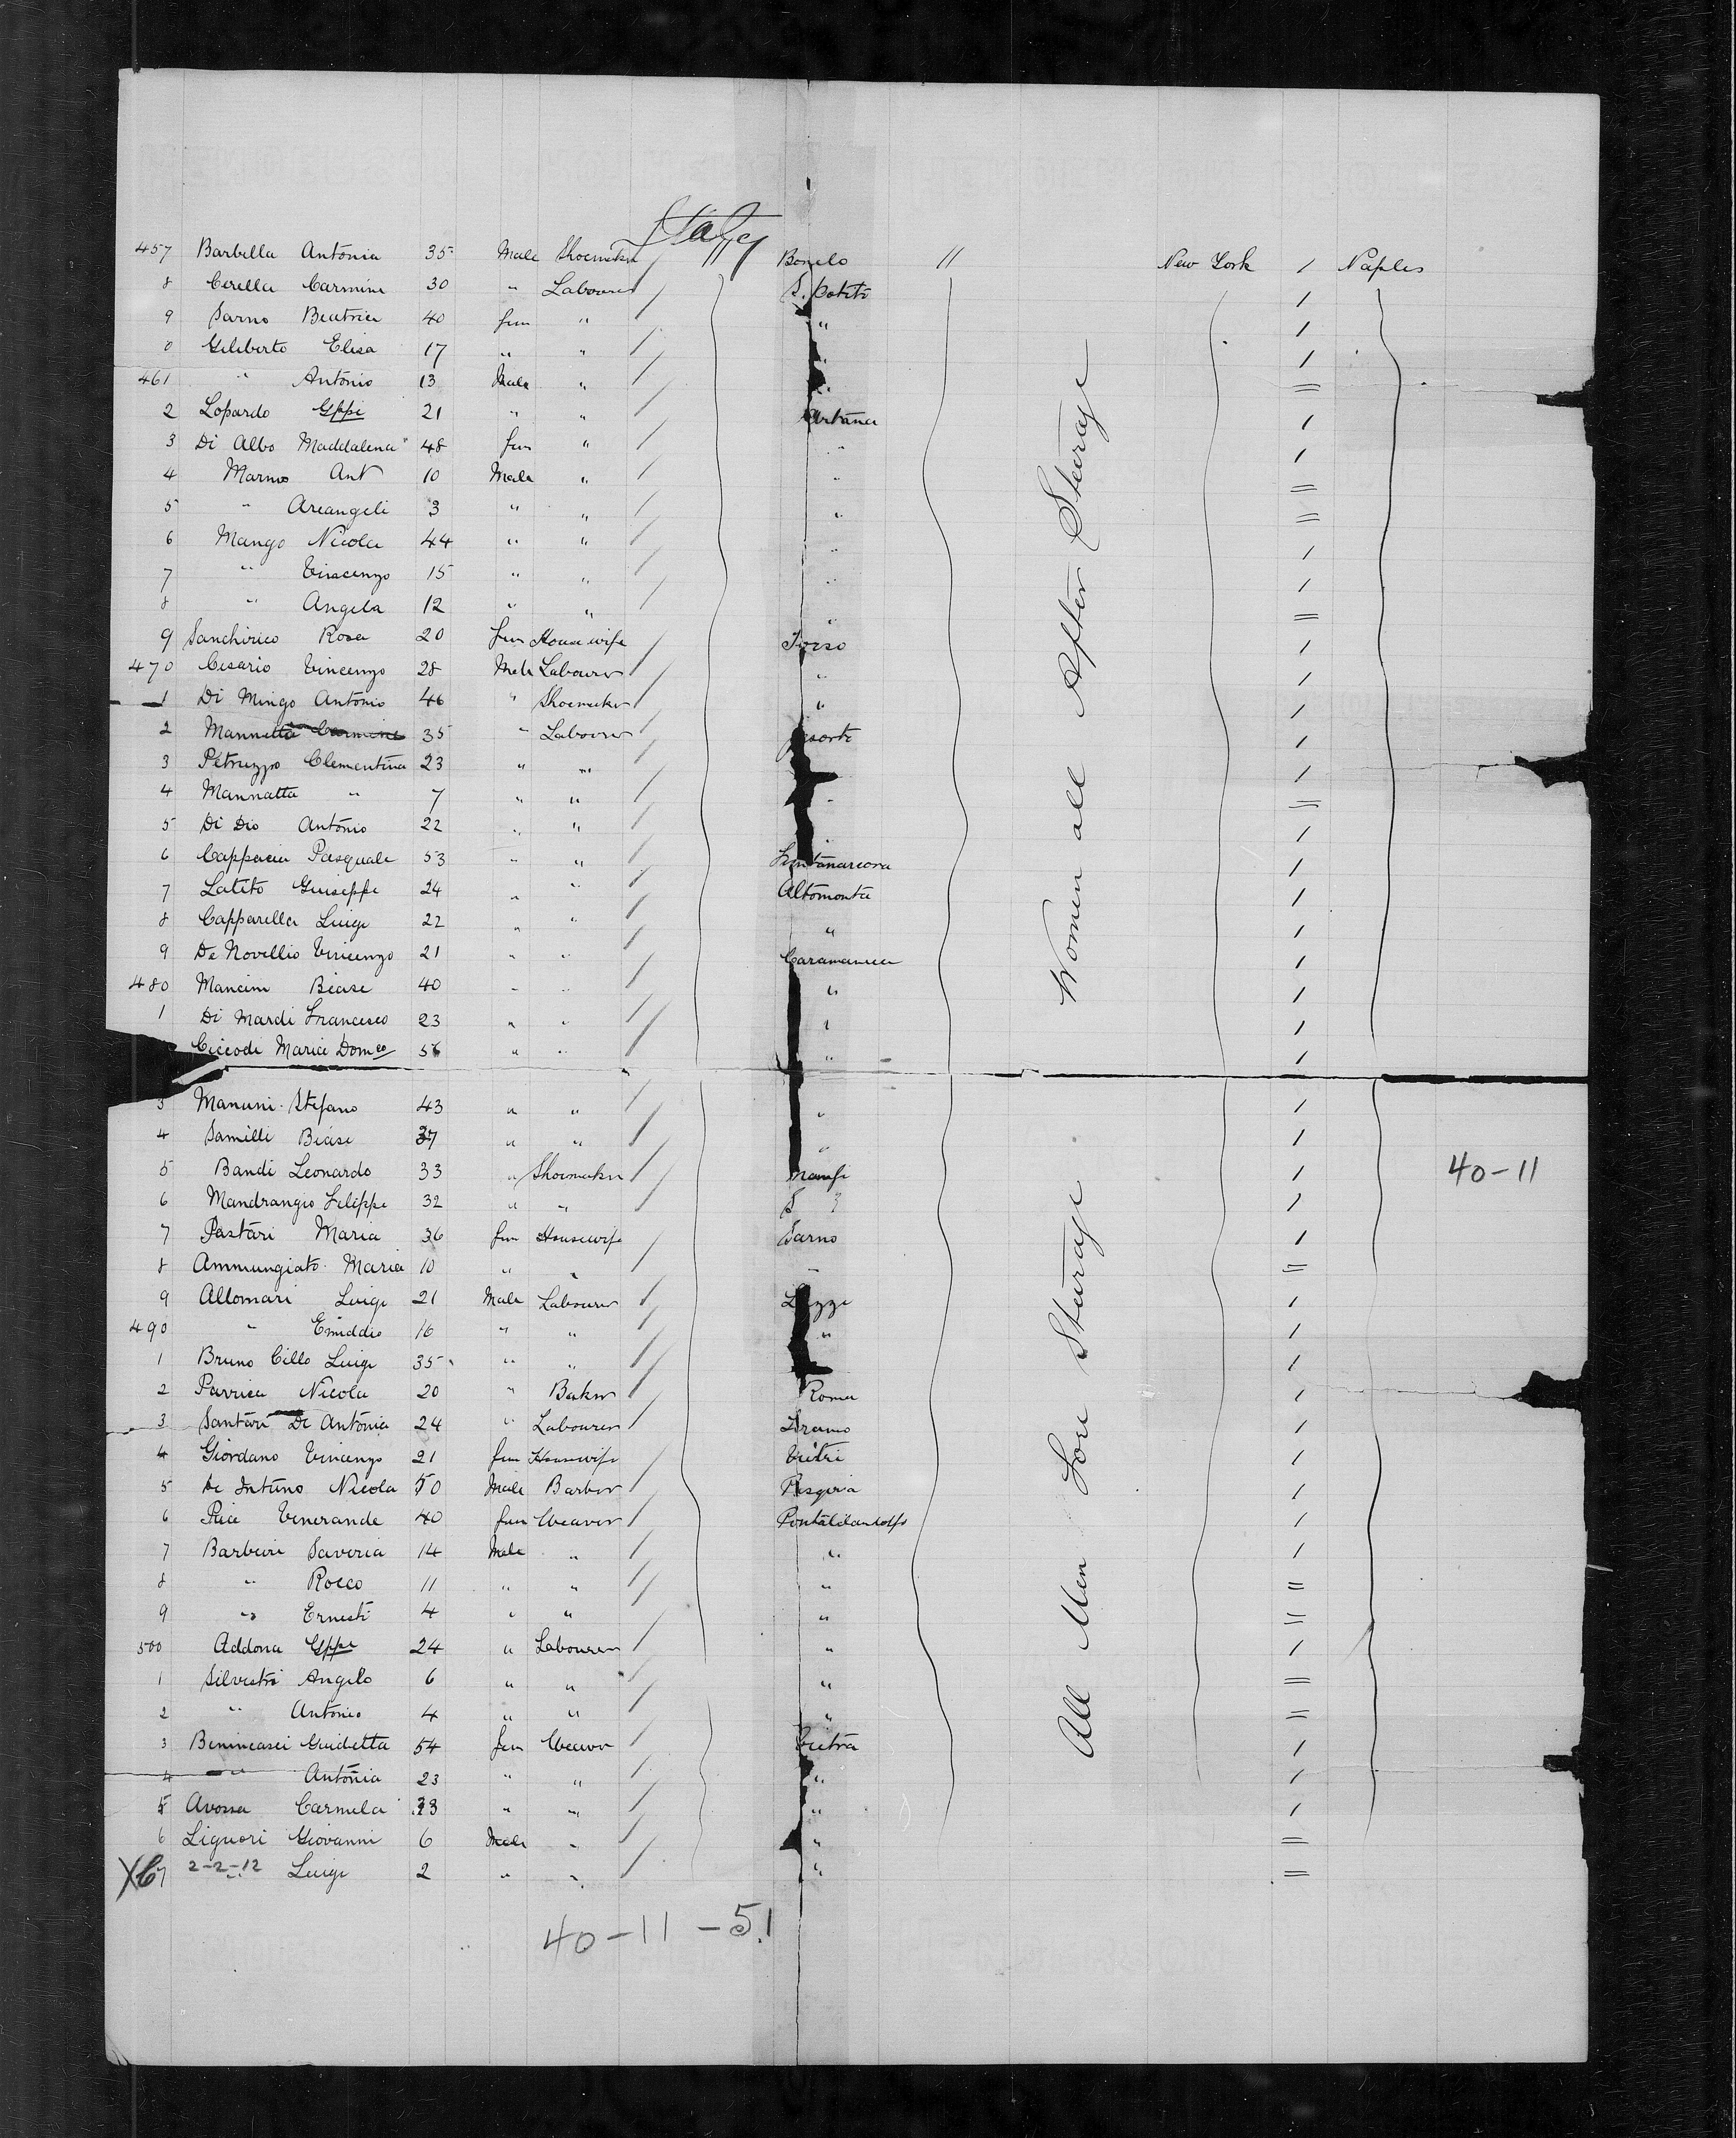 Italy
457 Barbella Antonia 35 Male Shoemaker Bonelo " New York / Naples
8 Cerella Carmine 30 " Labourer S. Potito /
9 Sarno Beatrice 40 fem " " /
0 Geliberto Elisa 17 " " " /
461 " Antonio 13 Male " " =
2 Lopardo Gppe 21 " " Artana /
3 Di Albo Maddalena 48 fem " " /
4 Marmo Ant 10 Male " " =
5 " Arcangeli 3 " " " =
6 Mango Nicola 44 " " " /
7 " Vincenzo 15 " " " /
8 " Angela 12 " " " =
9 Sanchirico Rosa 20 fem Housewife /
470 Cesario Vincenzo 28 Male Labourer " /
1 Di Mingo Antonio 46 " Shoemaker " /
2 Mannetta Carmine 35 " Labourer /
3 Petruzzo Clementina 23 " " /
4 Mannatta " 7 " " " =
5 Di Dio Antonio 22 " " " /
6 Cappacia Pasquale 53 " " /
7 Latito Guiseppe 24 " " Altomonte /
8 Capparella Luigi 22 " " " /
9 De Novellis Vincenzo 21 " " Caramanica /
480 Mancini Biase 40 " " " /
1 Di Mardi Francesco 23 " " " /
Ciccodi Maria Domco 56 " " " /
3 Manuni Stefano 43 " " " /
4 Samilli Biase 37 " " " /
5 Bandi Leonardo 33 " Shoemaker / 40-11
6 Mandrangio Filippi 32 " " S /
7 Pastari Maria 36 fem Housewife Sarno /
8 Ammungiato Maria 10 " " " =
9 Allomari Luigi 21 Male Labourer Luzzi /
490 " Emiddio 16 " " " /
1 Bruno Cillo Luigi 35 " " /
2 Parrica Nicola 20 " Baker Roma /
3 Santari Di Antonia 24 " Labourer /
4 Giordano Vincenzo 21 fem Housewife Vietri /
5 De Intino Nicola 50 Male Barber /
6 Pice Venerande 40 fem Weaver Pontelandolfo /
7 Barbieri Saveria 14 Male " " /
8 " Rocco 11 " " " =
9 " Ernesti 4 " " " =
500 Addona Gppe 24 " Labourer " /
1 Silvestri Angelo 6 " " " =
2 " Antonio 4 " " " =
3 Benincasei Guidetta 54 fem Weaver Vietra /
4 " Antonia 23 " " " /
5 Avossa Carmela 33 " " " /
6 Liguori Giovanni 6 Male " " =
X67 2-2-12 " Luigi 2 " " " =
Women all After Steerage
All Men Fore Steerage
40-11-51